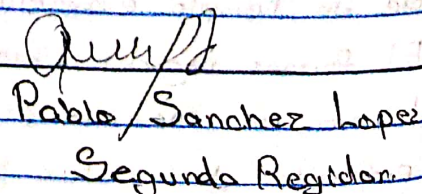 Pablo Sanchez Lopez
Segundo Regidor.